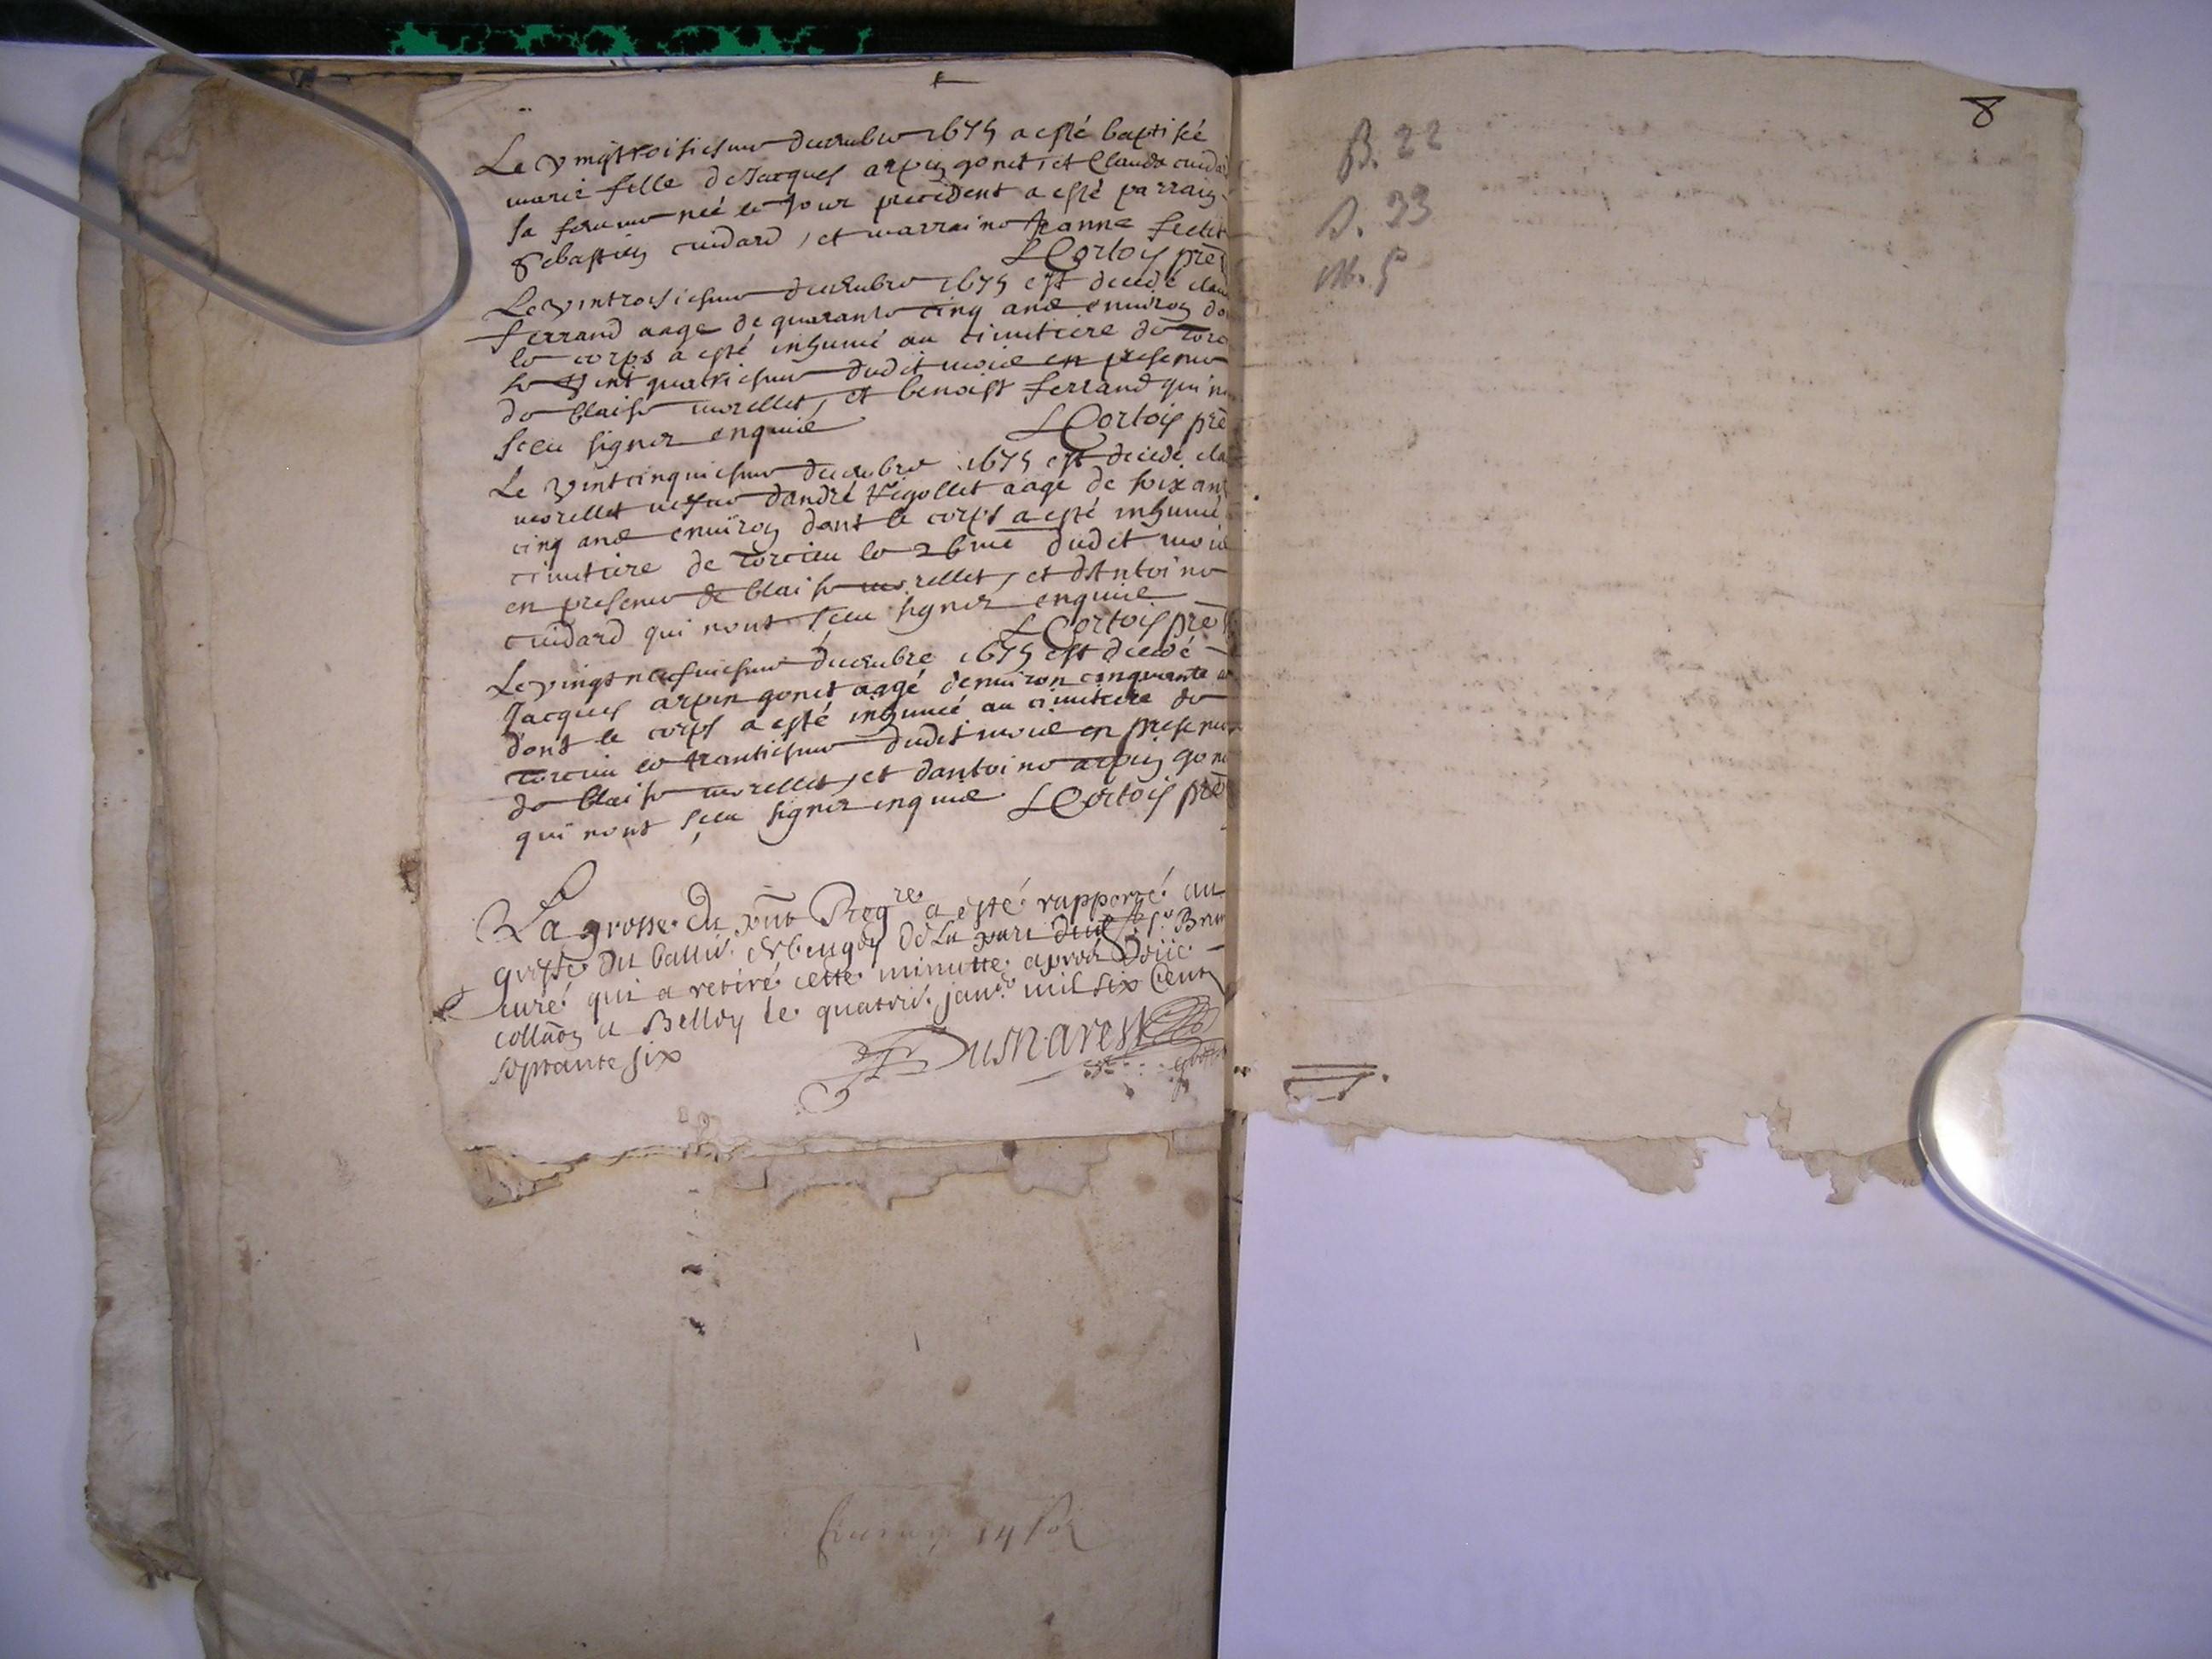 Le vingttroisiesme decembre 1675 a esté baptisée
marie fille de Jacques arpin gonet, et Claude cuidar
sa femme née le jour precedent a esté parrain
Sebastien cuidard, et marraine Jeanne
L Cortois pre
Le vintroisiesme decembre 1675 est decedé clau
ferrand aage de quarante cinq ans environ do
le corps a esté inhumé au cimetiere de torc
le vint quatriesme dudit mois en presence
de blaise morellet, et benoist ferrand qui n
sceu signer enquis
L Cortois pre
Le vintcinquiesme decembre 1675 est decedé cla
morellet vefve dandré aagé de soixan
cinq ans environ dont le corps a esté inhumé
cimetiere de torcieu le 26me dudit mois
en presence de blaise morellet, et dAntoine
cuidard qui nont sceu signer enquis
L Cortois pre
Le vingtneufviesme decembre 1675 est decedé
Jacques arpin gonet aagé denviron cinquante a
dont le corps a esté inhumé au cimetiere de
torcieu le trantiesme dudit mois en presence
de blaise morellet, et dantoine arpin gone
qui nont sceu signer enquis L Cortois pre
La grosse du pnt Regre a esté rapporté au
greffe du balli. de beugey de la part Sr Brun
curé qui a retiré cette minutte apres
collaon a Belley le quatri. janv. mil six Cent
septante six
Dumarest
8
B. 22
D. 33
M. 5